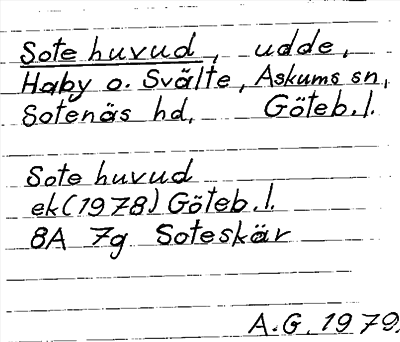 Sote huvud, udde,
Haby o. Svälte, Askums sn,
Sotenäs hd, Göteb. l.
Sote huvud
ek (1978) Göteb. l.
8A 7g Soteskär
A.G. 1979.